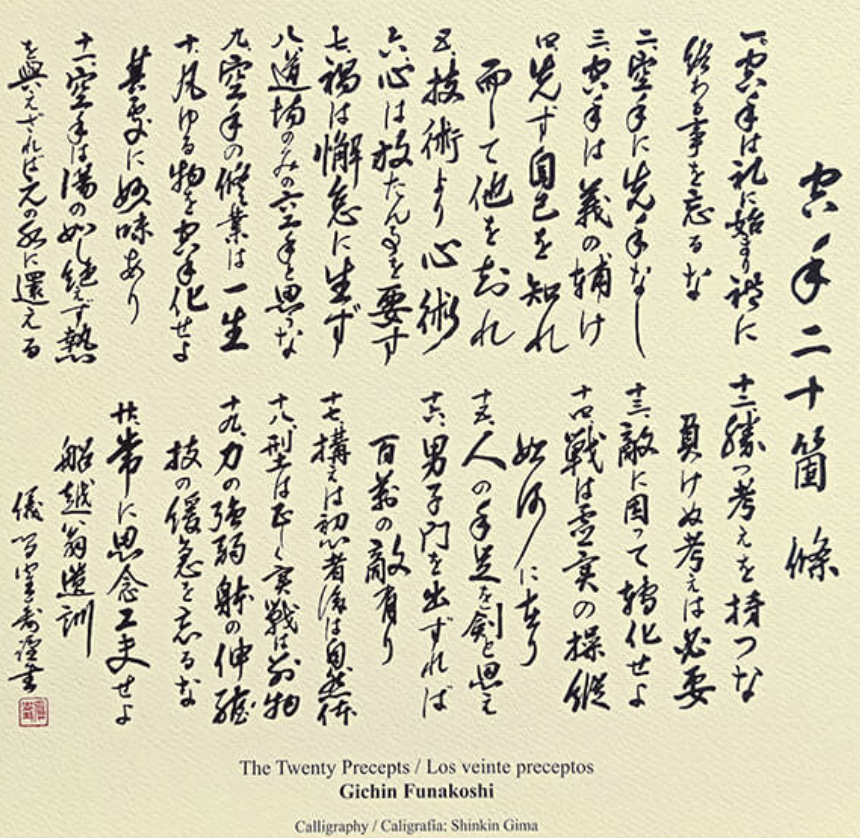 空手二十箇條
一、空手は礼に始まり禮に
終わる事を忘るな
二、空手に先手なし
三、空手は義の輔け
四、先ず自己を知れ
而して他を知れ
五、技術より心術
六、心は放たん事を要す
七、禍は懈怠に生ず
八、道場のみの空手と思うな
九、空手の修業は一生
十、凡ゆる物を空手化せよ
其処に妙味あり
十一、空手は湯の如し絶えず熱
を與えざれば元の水に還える
十二、勝つ考えを持つな
負けぬ考えは必要
十三、敵に因って轉化せよ
十四、戦は虚実の操縦
如何に在り
十五、人の手足を剣と思え
十六、男子門を出ずれば
百萬の敵有り
十七、構えは初心者後は自然体
十八、型は正しく実戦は別物
十九、力の強弱躰の伸縮
技の緩急を忘るな
廿、常に思念工夫せよ
船越翁遺訓
儀間 書
The Twenty Precepts / Los veinte preceptos
Gichin Funakoshi
Calligraphy / Caligrafía: Shinkin Gima